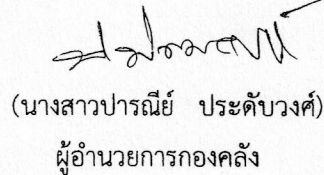 (นางสาวปารณีย์ ประดับวงศ์)
ผู้อำนวยการกองคลัง